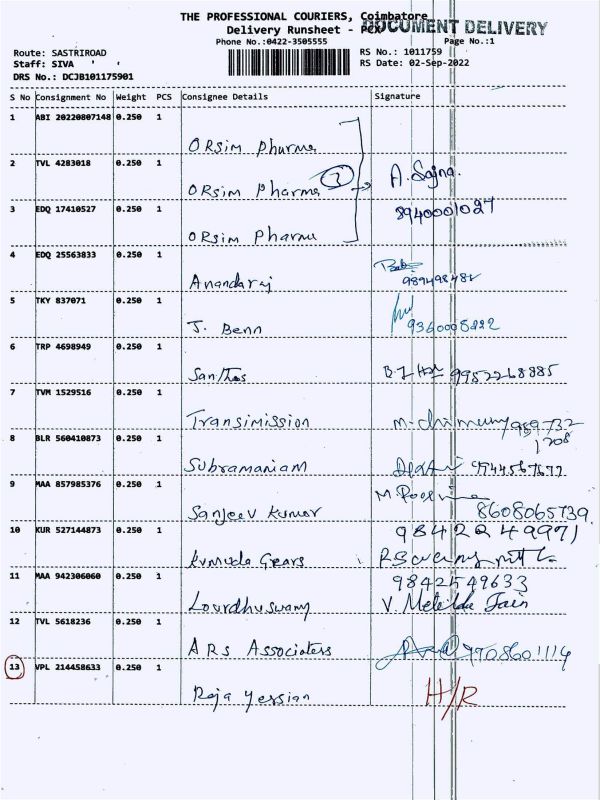 THE PROFESSIONAL COURIERS, Coimbatore
DOCUMENT DELIVERY
Delivery Runsheet - PCX
Phone No.:0422-3505555 Page No.:1
Route: SASTRIROAD RS No.: 1011759
Staff: SIVA RS Date: 02-Sep-2022
DRS No.: DCJB101175901
S No Consignment No Weight PCS Consignee Details Signature
1 ABI 20220807148 0.250 1
Orsim Pharma
2 TVL 4283018 0.250 1
Orsim Pharma 3 A. Sajna.
3 EDQ 17410527 0.250 1 8940001027
Orsim Pharma
4 EDQ 25563833 0.250 1
Anandaraj
5 TKY 837071 0.250 1
J. Benn 9360005822
6 TRP 4698949 0.250 1
Santhos 9952268885
7 TVM 1529516 0.250 1
Transimission
8 BLR 560410873 0.250 1
Subramaniam
9 MAA 857985376 0.250 1
Sanjeev Kumar 8608065739
10 KUR 527144873 0.250 1 9842249971
Kumuda Gears
11 MAA 942306060 0.250 1 9842549633
Lourdhuswamy
12 TVL 5618236 0.250 1
ARS Associaters
13 VPL 214458633 0.250 1
Raja yessian H/R